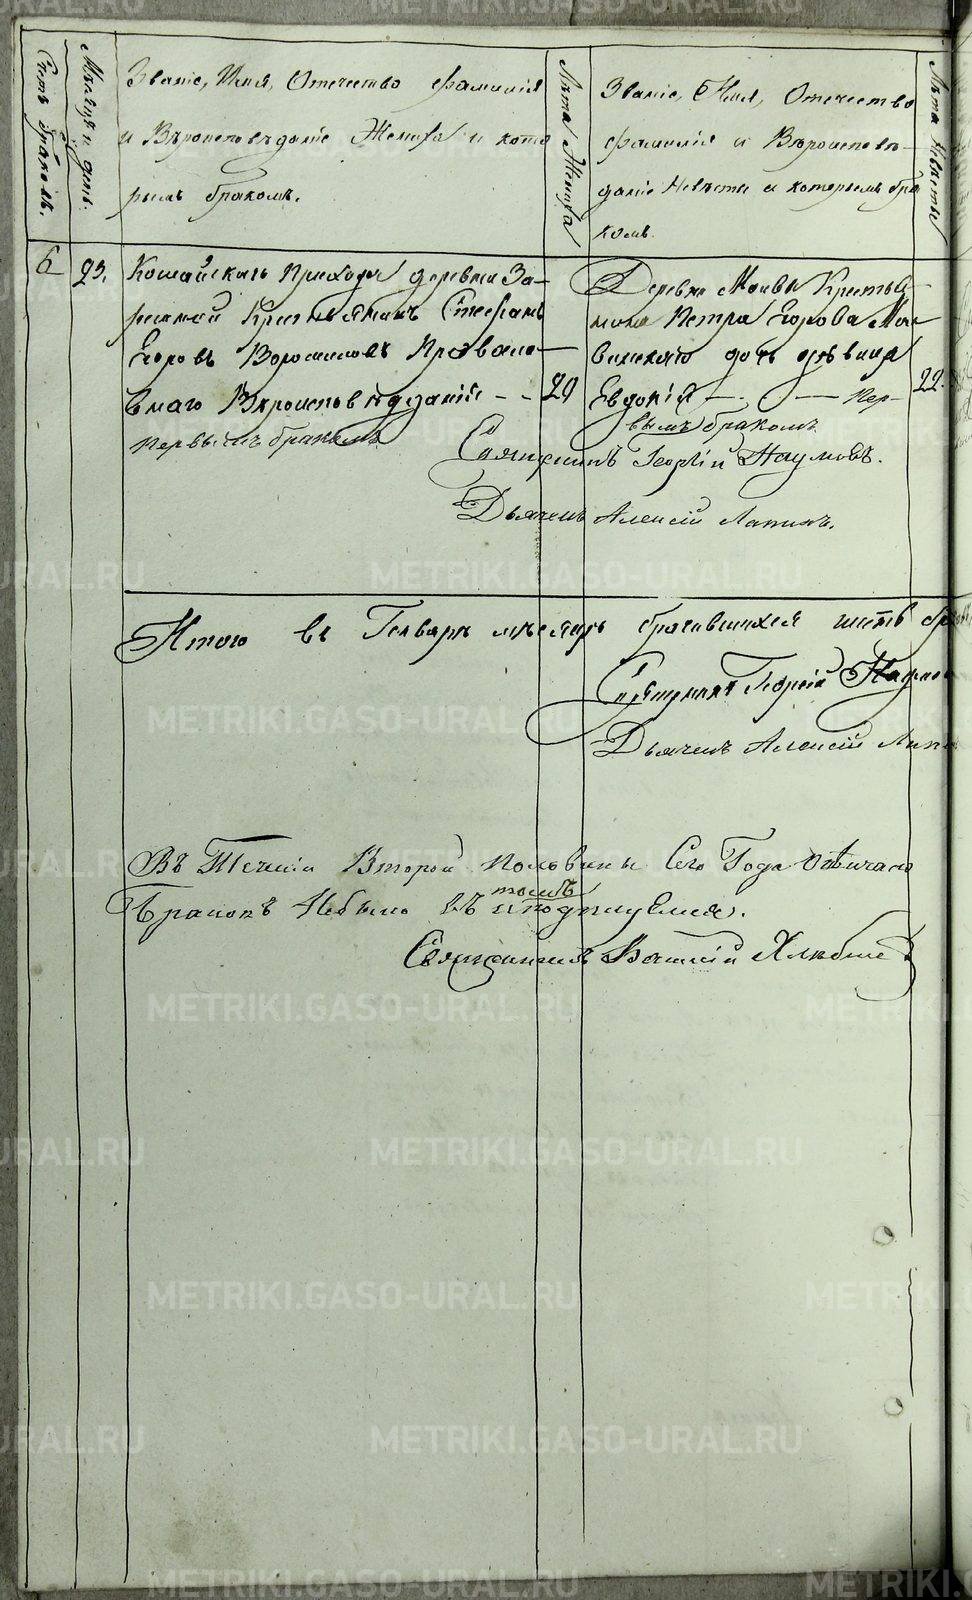 Счетъ браковъ.
Мѣсяцъ и день.
Званіе, Имя, Отечество фамилія
и Вѣроисповѣданіе Жениха и кото
рымъ бракомъ.
Лѣта Жениха
Званіе, Имя, Отечество
фамилія и Вѣроисповѣ-
даніе Невѣсты и которымъ бра
комъ
Лѣта Невѣсты
6
23.
Кошайскаго Прихода деревни За-
речной Крестьянинъ Стефанъ
Егоровъ Ворошиловъ Православ-
внаго Вѣроисповѣданій - -
первымъ бракомъ
29
Деревни Маивы Крестья-
нина Петра Егорова Ма-
винскаго дочь дѣвица
Евдокія — — Пер-
вымъ бракомъ
22.
Священникъ Георгій Наумовъ.
Дьячекъ Алексій Лапинъ.
Итого въ Генварѣ мѣсяцѣ бракавшихся шесть бра
Священникъ Георгій Наумов
Дьячекъ Алексій Лапи
Въ Теченіи Второй половины Сего Года
Браковъ Небыло въ томъ и подписуемся.
Священникъ Василій Хлѣбинъ
METRIKI.GASO-URAL.RU